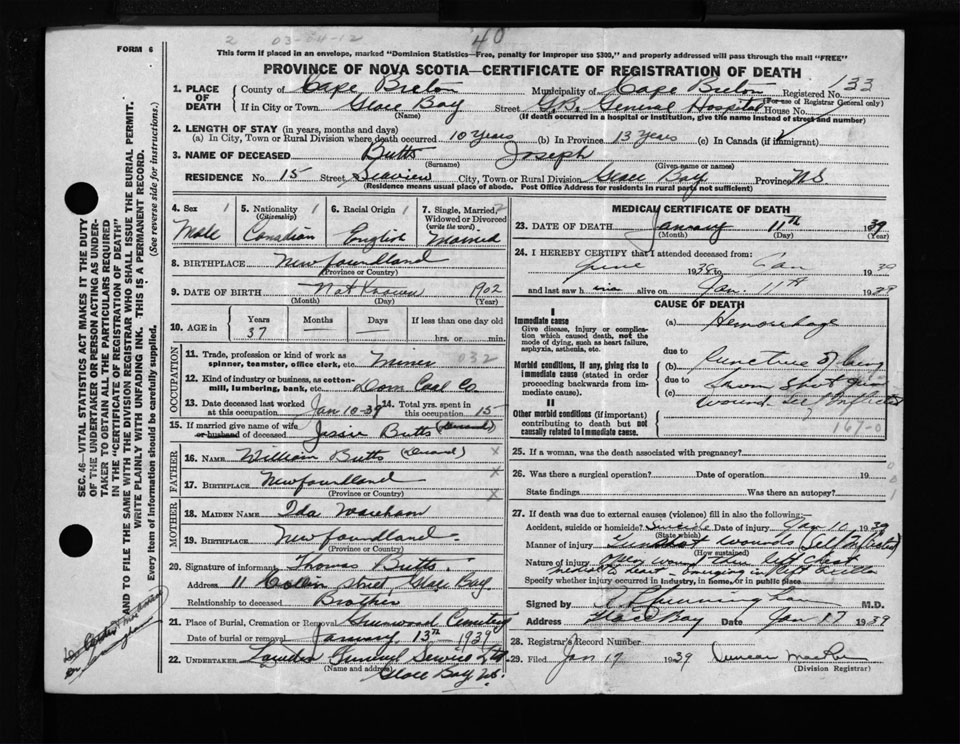 2 03-64-12 40
FORM 6
This form if placed in an envelope, marked "Dominion Statistics—Free, penalty for improper use $300," and properly addressed will pass through the mail "FREE"
PROVINCE OF NOVA SCOTIA—CERTIFICATE OF REGISTRATION OF DEATH
1. PLACE OF DEATH
County of Cape Breton Municipality of Cape Breton Registered No. 133
(For use of Registrar General only)
If in City or Town Glace Bay Street G.B. General Hospital House No.
(Name) (If death occurred in a hospital or institution, give the name instead of street and number)
2. LENGTH OF STAY (in years, months and days)
(a) In City, Town or Rural Division where death occurred 10 Years (b) In Province 13 Years (c) In Canada (if immigrant)
3. NAME OF DECEASED Butts Joseph
(Surname) (Given name or names)
RESIDENCE No. 15 Street Seaview City, Town or Rural Division Glace Bay Province NS
(Residence means usual place of abode. Post Office Address for residents in rural parts not sufficient)
4. Sex 1 Male
5. Nationality 1 (Citizenship) Canadian
6. Racial Origin 1 English
7. Single, Married, 2 Widowed or Divorced (write the word) Married
8. BIRTHPLACE Newfoundland
(Province or Country)
9. DATE OF BIRTH Not Known 1902
(Month) (Day) (Year)
10. AGE in Years 37 Months — Days — If less than one day old
hrs. or min.
OCCUPATION
11. Trade, profession or kind of work as spinner, teamster, office clerk, etc. Miner 032
12. Kind of industry or business, as cotton-mill, lumbering, bank, etc. Dom Coal Co
13. Date deceased last worked at this occupation Jan 10-39 14. Total yrs. spent in this occupation 15
15. If married give name of wife or husband of deceased Jessie Butts
FATHER
16. NAME William Butts x
17. BIRTHPLACE Newfoundland x
(Province or Country)
MOTHER
18. MAIDEN NAME Ida Wareham
19. BIRTHPLACE Newfoundland
(Province or Country)
20. Signature of informant Thomas Butts
Address 11 Street Glace Bay
Relationship to deceased Brother
21. Place of Burial, Cremation or Removal Greenwood Cemetery
Date of burial or removal January 13th 1939
22. UNDERTAKER General Service Ltd
(Name and address)
Glace Bay NS.
MEDICAL CERTIFICATE OF DEATH
23. DATE OF DEATH January 11th 1939
(Month) (Day) (Year)
24. I HEREBY CERTIFY that I attended deceased from:
June 1938 to Jan 1939
and last saw him alive on Jan. 11th 1939
CAUSE OF DEATH
I
Immediate cause
Give disease, injury or complication which caused death, not the mode of dying, such as heart failure, asphyxia, asthenia, etc.
(a) Hemorrhage
due to
Morbid conditions, if any, giving rise to immediate cause (stated in order proceeding backwards from immediate cause).
(b) Puncture of lung
due to
(c) shot gun
wound self inflicted
II
Other morbid conditions (if important) contributing to death but not causally related to immediate cause.
167-0
25. If a woman, was the death associated with pregnancy?
26. Was there a surgical operation? Date of operation 19
State findings Was there an autopsy?
27. If death was due to external causes (violence) fill in also the following:
Accident, suicide or homicide? Suicide Date of injury Jan 10 1939
(State which)
Manner of injury Gunshot wounds (Self Inflicted)
(How sustained)
Nature of injury
Specify whether injury occurred in industry, in home, or in public place
Signed by M.D.
Address Glace Bay Date Jan 17 1939
28. Registrar's Record Number
29. Filed Jan 19 1939 Duncan
(Division Registrar)
SEC. 46—VITAL STATISTICS ACT MAKES IT THE DUTY
OF THE UNDERTAKER OR PERSON ACTING AS UNDER-
TAKER TO OBTAIN ALL THE PARTICULARS REQUIRED
IN THE "CERTIFICATE OF REGISTRATION OF DEATH"
AND TO FILE THE SAME WITH THE DIVISION REGISTRAR WHO SHALL ISSUE THE BURIAL PERMIT.
WRITE PLAINLY WITH UNFADING INK. THIS IS A PERMANENT RECORD.
Every item of information should be carefully supplied. (See reverse side for instructions.)